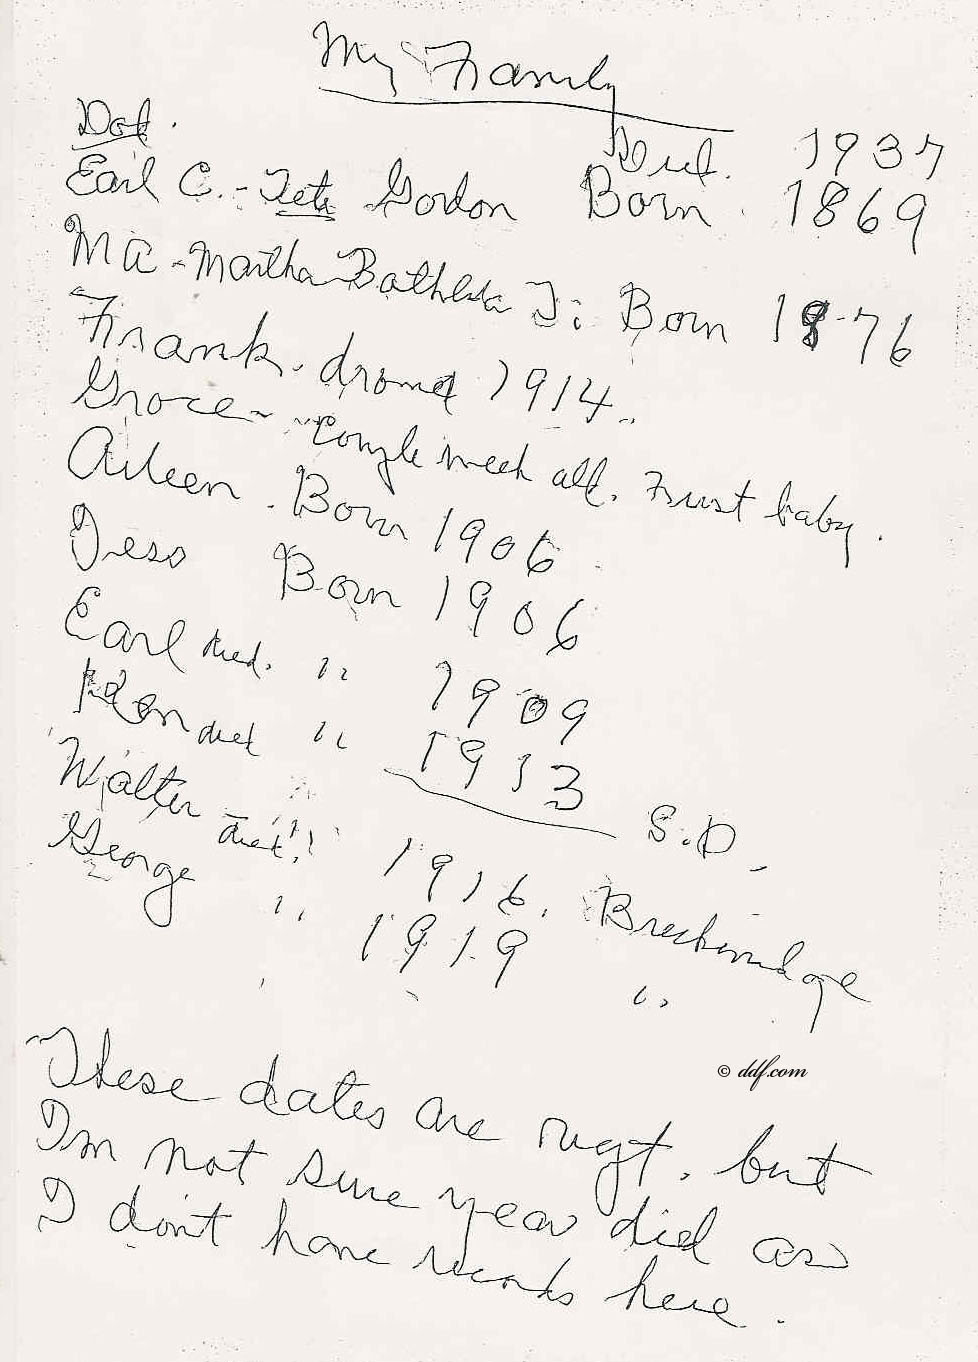 My Family
Dad.
Died. 1937
Earl C. - Tete Gordon Born 1869
MA - Martha Bathsheba J: Born 1876
Frank. drowned 1914.
Grace - couple week old. First baby.
Aileen. Born 1906
Jess Born 1906
Earl died. " 1909
Ken died " 1913 S.D.
Walter - died " 1916. Breckenridge
George " 1919 "
These dates are right, but
I'm not sure year died as
I don't have records here.
© ddf.com